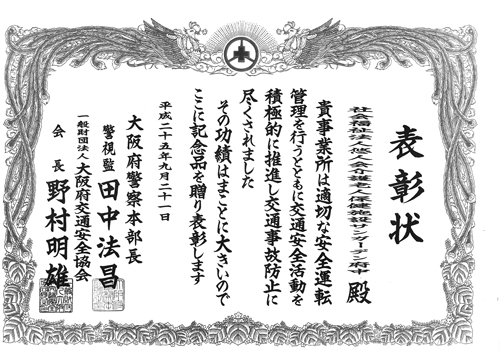 表彰状
社会福祉法人悠人会介護老人保健施設サンガーデン府中 殿
貴事業所は適切な安全運転
管理を行うとともに交通安全活動を
積極的に推進し交通事故防止に
尽くされました
その功績はまことに大きいので
ここに記念品を贈り表彰します
平成二十五年九月二十一日
大阪府警察本部長
警視監 田中法昌
一般財団法人大阪府交通安全協会
会長 野村明雄